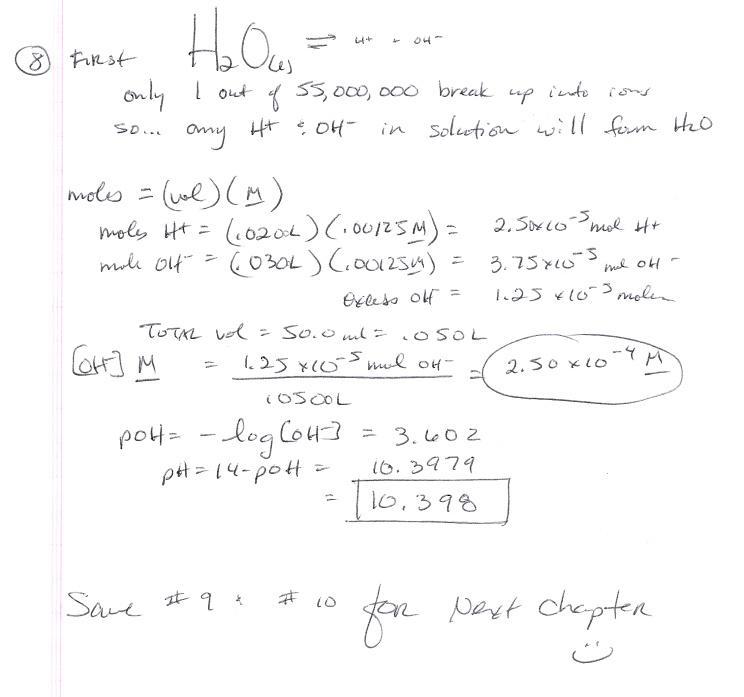 ⑧ First H₂O(l) ⇌ H+ + OH-
only 1 out of 55,000,000 break up into ions
so... any H+ & OH- in solution will form H₂O
moles = (vol)(M)
moles H+ = (.020L)(.00125M) = 2.50x10⁻⁵ mol H+
mole OH- = (.030L)(.00125M) = 3.75x10⁻⁵ mol OH-
Excess OH- = 1.25 x10⁻⁵ moles
TOTAL vol = 50.0ml = .050L
[OH-] M = 1.25 x10⁻⁵ mol OH- = 2.50 x10⁻⁴ M
.0500L
pOH = -log[OH-] = 3.602
pH = 14-pOH = 10.3979
= 10.398
Save #9 & #10 for Next chapter